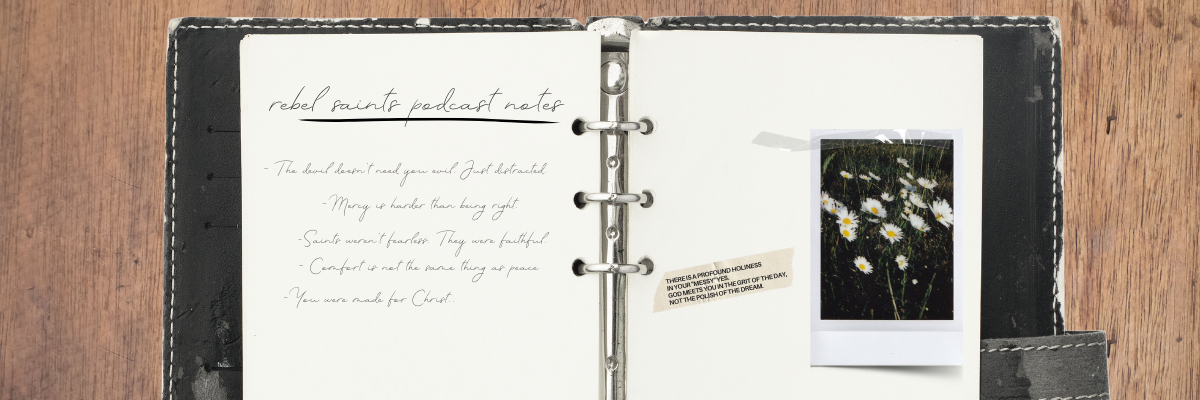 rebel saints podcast notes
- The devil doesn't need you evil. Just distracted
-Mercy is harder than being right.
-Saints weren't fearless. They were faithful.
- Comfort is not the same thing as peace
-You were made for Christ..
THERE IS A PROFOUND HOLINESS
IN YOUR "MESSY" YES.
GOD MEETS YOU IN THE GRIT OF THE DAY,
NOT THE POLISH OF THE DREAM.